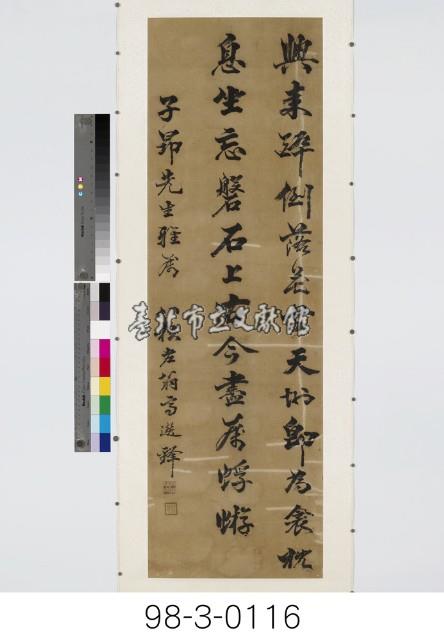 興來醉倒落花前天地即為衾枕
息坐忘磐石上古今盡屬蜉蝣
子昂先生雅屬 翁高選鋒
臺北市立文獻館
98-3-0116